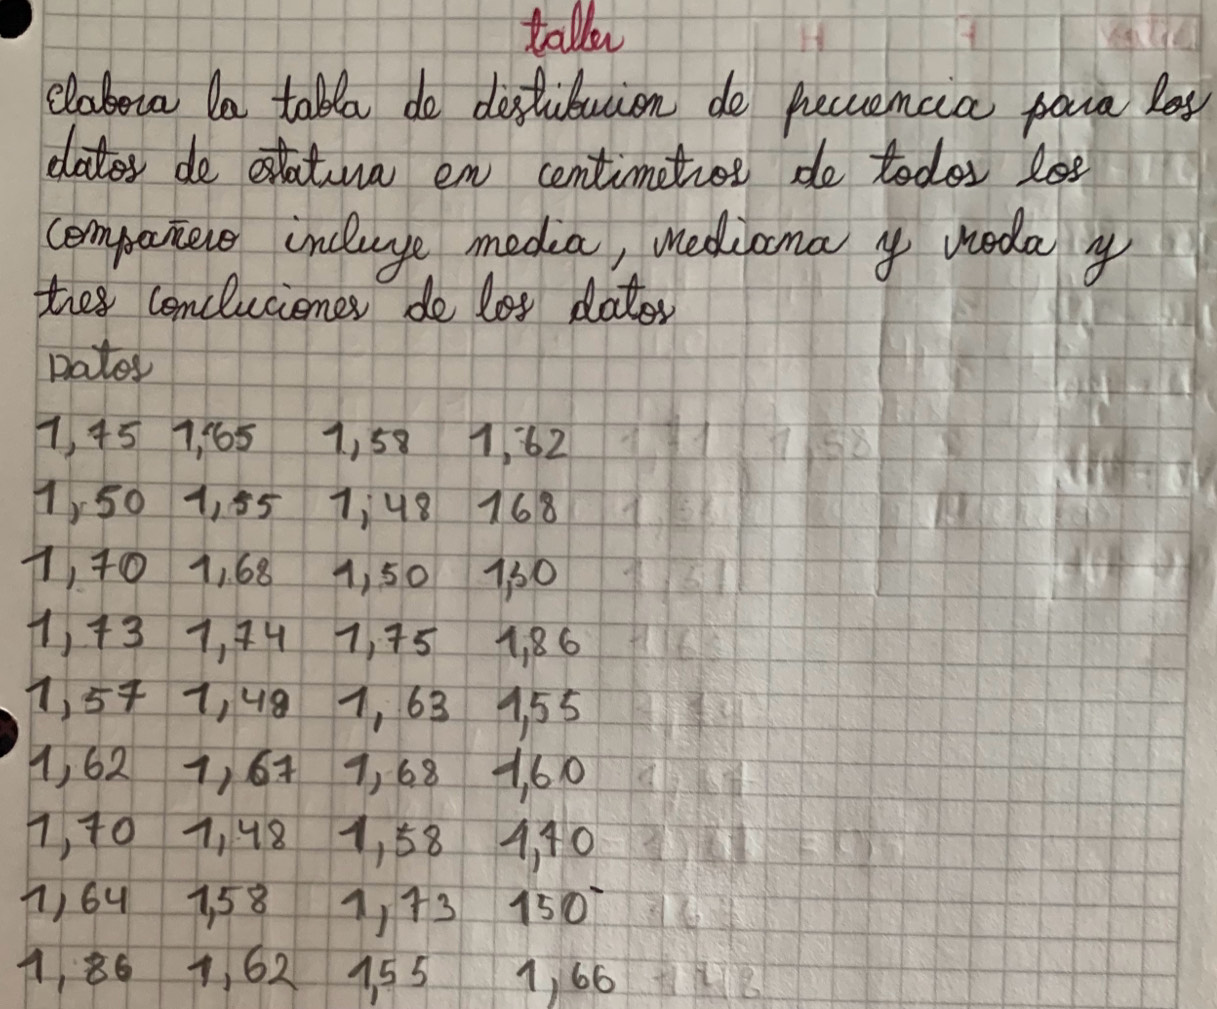 taller
elabora la tabla de distribucion de frecuencia para los
datos de estatura en centimetros de todos los
compañero incluye media, mediana y moda y
tres concluciones de los datos
Datos
1,75 1,65 1,58 1,62
1,50 1,55 1,48 168
1,70 1,68 1,50 1,50
1,73 1,74 1,75 1,86
1,57 1,48 1,63 1,55
1,62 1,67 1,68 1,60
1,70 1,48 1,58 1,70
1,64 1,58 1,73 150
1,86 1,62 1,55 1,66